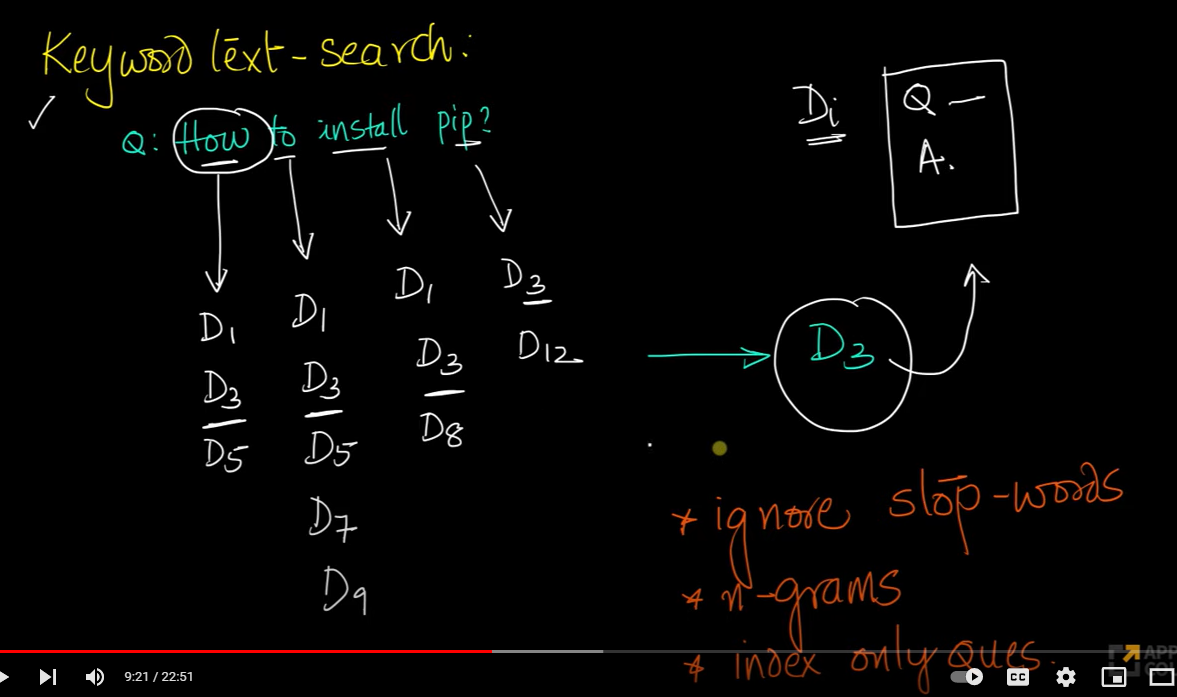 Keyword text-search:
Q: How to install pip?
Di
Q
A.
D1 D1 D1 D3
D3 D3 D3 D12
D5 D5 D8
D7
D9
D3
* ignore stop-words
* n-grams
* index only Ques.
9:21 / 22:51
CC